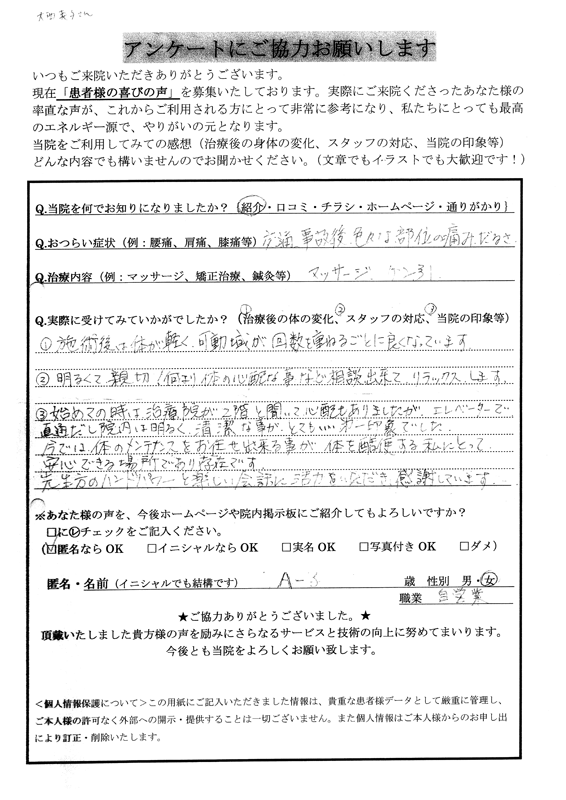 アンケートにご協力お願いします
いつもご来院いただきありがとうございます。
現在「患者様の喜びの声」を募集いたしております。実際にご来院くださったあなた様の
率直な声が、これからご利用される方にとって非常に参考になり、私たちにとっても最高
のエネルギー源で、やりがいの元となります。
当院をご利用してみての感想（治療後の身体の変化、スタッフの対応、当院の印象等）
どんな内容でも構いませんのでお聞かせください。（文章でもイラストでも大歓迎です！）
Q.当院を何でお知りになりましたか？｛紹介・口コミ・チラシ・ホームページ・通りがかり｝
Q.おつらい症状（例：腰痛、肩痛、膝痛等）交通事故後色々な部位の痛みだるさ
Q.治療内容（例：マッサージ、矯正治療、鍼灸等）マッサージ、ケン引
Q.実際に受けてみていかがでしたか？（①治療後の体の変化、②スタッフの対応、③当院の印象等）
①施術後は体が軽く、可動域が回数を重ねるごとに良くなっています
②明るくて親切！何より体の心配な事など相談出来て、リラックスします。
③始めての時は治療院が2階と聞いて心配もありましたが、エレベーターで
直通だし院内は明るく清潔な事が、とてもいい第一印象でした。
今では体のメンテナンスをお任せ出来る事が体を酷使する私にとって
安心できる場所であり存在です。
先生方のハンドパワーと楽しい会話に活力をいただき、感謝しています。
※あなた様の声を、今後ホームページや院内掲示板にご紹介してもよろしいですか？
□に✓チェックをご記入ください。
（☑匿名ならOK　□イニシャルならOK　□実名OK　□写真付きOK　□ダメ）
匿名・名前（イニシャルでも結構です）　A-S　歳　性別　男・女
職業　自営業
★ご協力ありがとうございました。★
頂戴いたしました貴方様の声を励みにさらなるサービスと技術の向上に努めてまいります。
今後とも当院をよろしくお願い致します。
＜個人情報保護について＞この用紙にご記入いただきました情報は、貴重な患者様データとして厳重に管理し、
ご本人様の許可なく外部への開示・提供することは一切ございません。また個人情報はご本人様からのお申し出
により訂正・削除いたします。